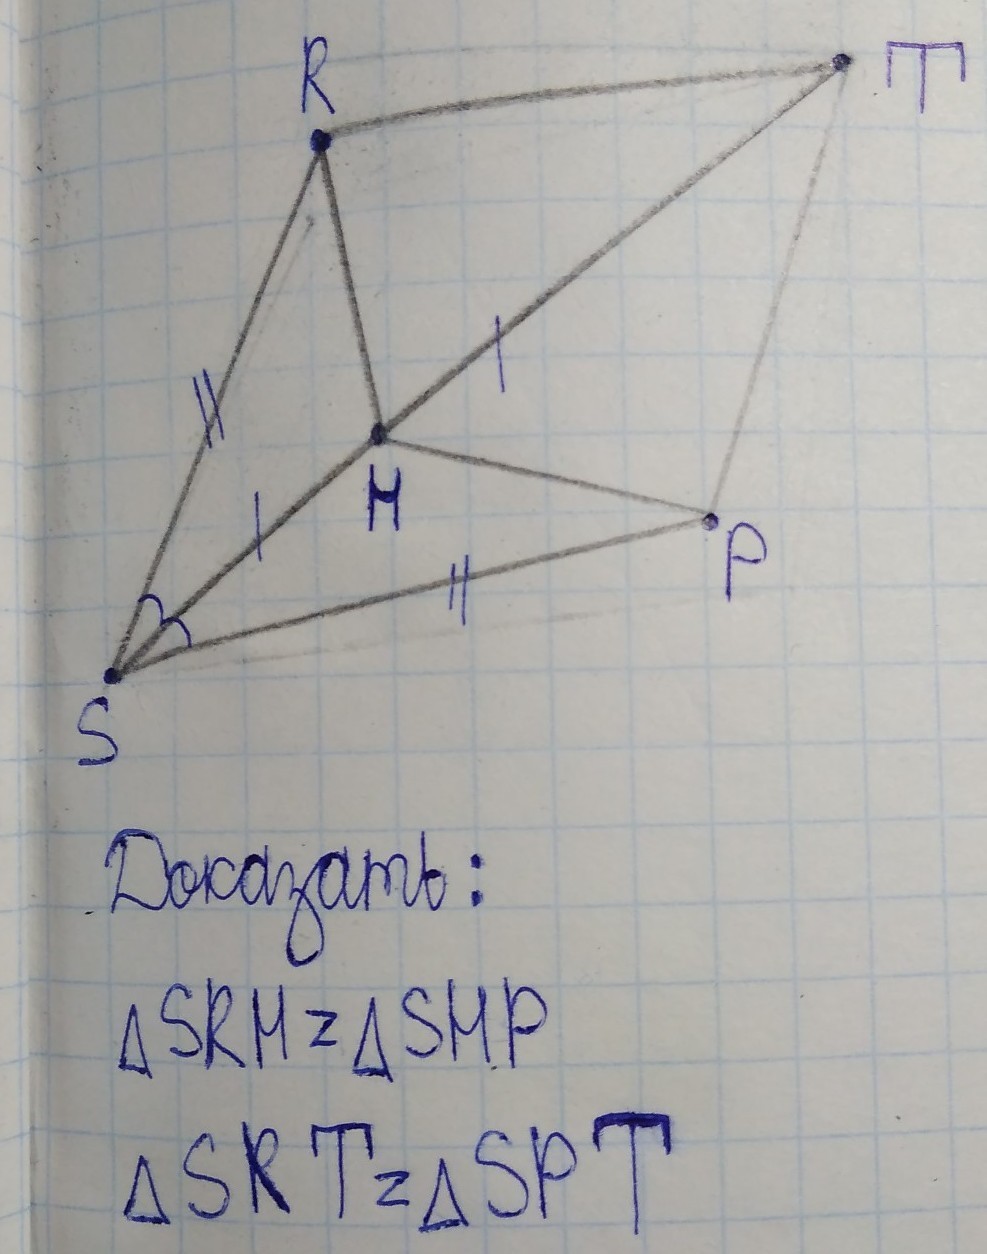 R
T
H
P
S
Доказать:
ΔSRH=ΔSHP
ΔSRT=ΔSPT